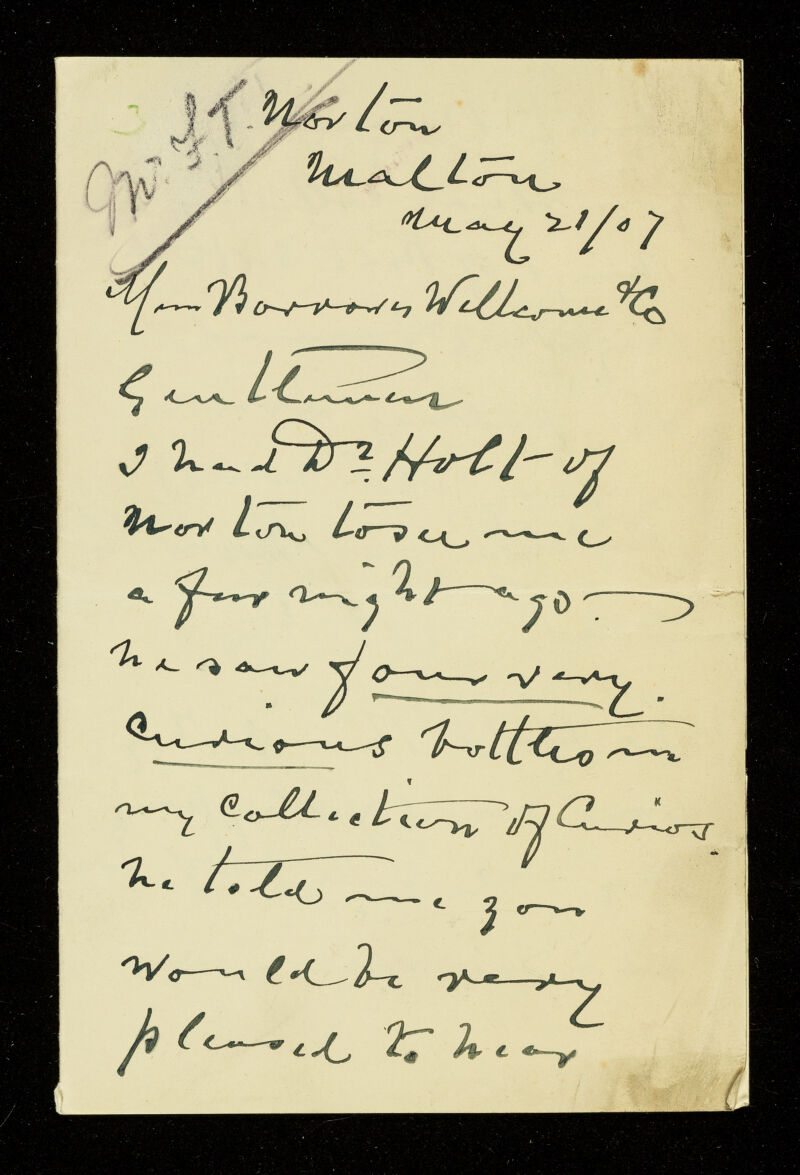 Mr. F.T.
Norton
Malton
May 21/07
Mess Borrows Wellcome & Co
Gentlemen
I had Dr. Holt of
Norton to see me
a few night ago.
he saw four very.
curious bottles in
my Collection of Curios.
he told me you
would be very
pleased to hear